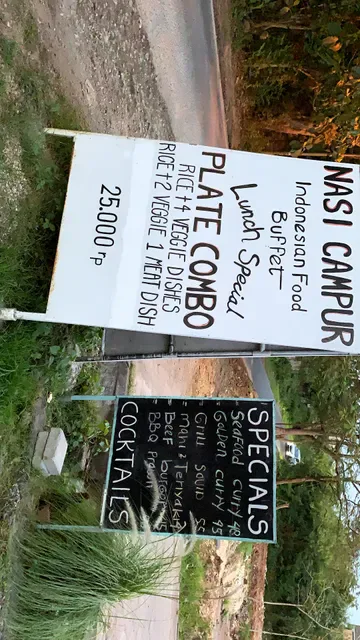 NASI CAMPUR
Indonesian Food
Buffet
Lunch Special
PLATE COMBO
RICE +4 VEGGIE DISHES
RICE +2 VEGGIE 1 MEAT DISH
25.000 rp
SPECIALS
Seafood curry
Golden curry 95
Grill squid
Mahi 2 Teriyaki
Beef
BBQ Prawn
COCKTAILS